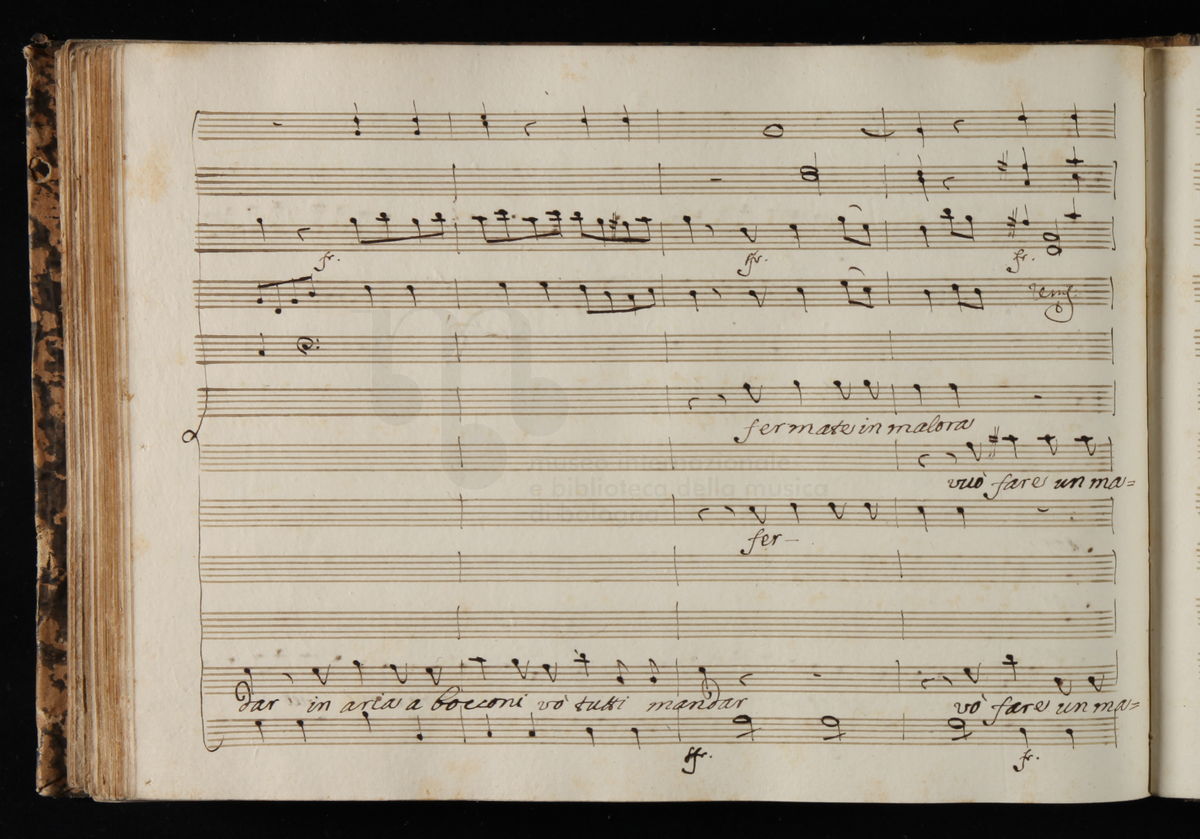 fr. sfr. fr.
Unis.
fermate in malora
museo internazionale
vuò fare un ma=
e biblioteca della musica
di bologna
fer—
dar in aria a bocconi vò tutti mandar vò fare un ma=
sfr. fr.